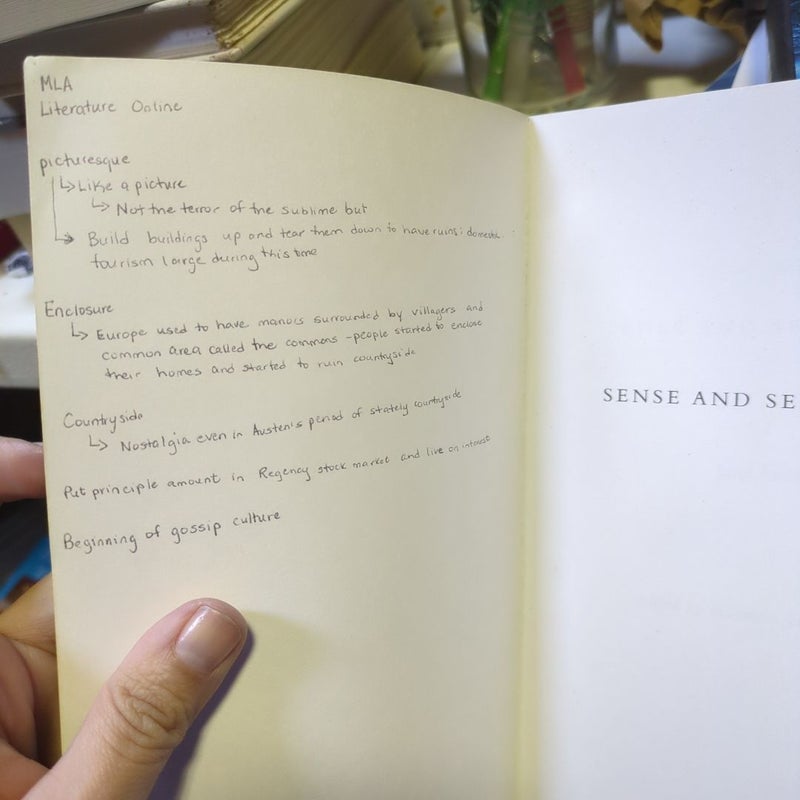 MLA
Literature Online
picturesque
↳ Like a picture
↳ Not the terror of the sublime but
↳ Build buildings up and tear them down to have ruins; domestic
tourism large during this time
Enclosure
↳ Europe used to have manors surrounded by villagers and
common area called the commons - people started to enclose
their homes and started to ruin countryside
Countryside
↳ Nostalgia even in Austen's period of stately countryside
Put principle amount in Regency stock market and live on interest
Beginning of gossip culture
SENSE AND SE